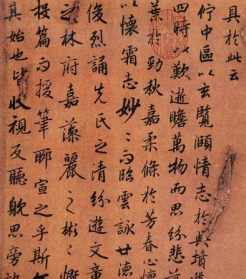 具於此云
佇中區以玄覽頤情志於典墳
四時以歎逝瞻萬物而思紛悲
葉於勁秋嘉柔條於芳春心懍
以懷霜志妙妙而臨雲詠世德
俊烈誦先民之清芬遊文章
之林府嘉藻麗之彬彬慨
投篇而援筆聊宣之乎斯
其始也皆收視反聽耽思旁